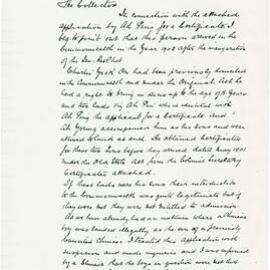 The Collector
In connection with the attached
application by Ah Pen for a Certificate I
beg to point out that this person arrived in the
Commonwealth in the Year 1902 after the inauguration
of the Im. Rest. Act
Charlie Gook Poo had been previously domiciled
in the Commonwealth and under the Original Act he
had a right to bring in sons up to the age of 18 Years
and two lads viz Ah Pen who is identical with
Ah Pen the applicant for a Certificate and
Ah Young accompanied him as his sons and were
allowed to land as such. He obtained Certificates
for these two sons before they arrived dated May 1901
under the Old State Act from the Colonial Secretary
Certificates attached.
If these lads were his sons their introduction
to the Commonwealth was quite legitimate but if
they were not they were not entitled to admission
As we have already had an instance where a Chinese
boy was landed illegally as the son of a previously
domiciled Chinese I treated this application with
suspicion and made inquiries and I was informed
by a Chinese that the boys in question were not this